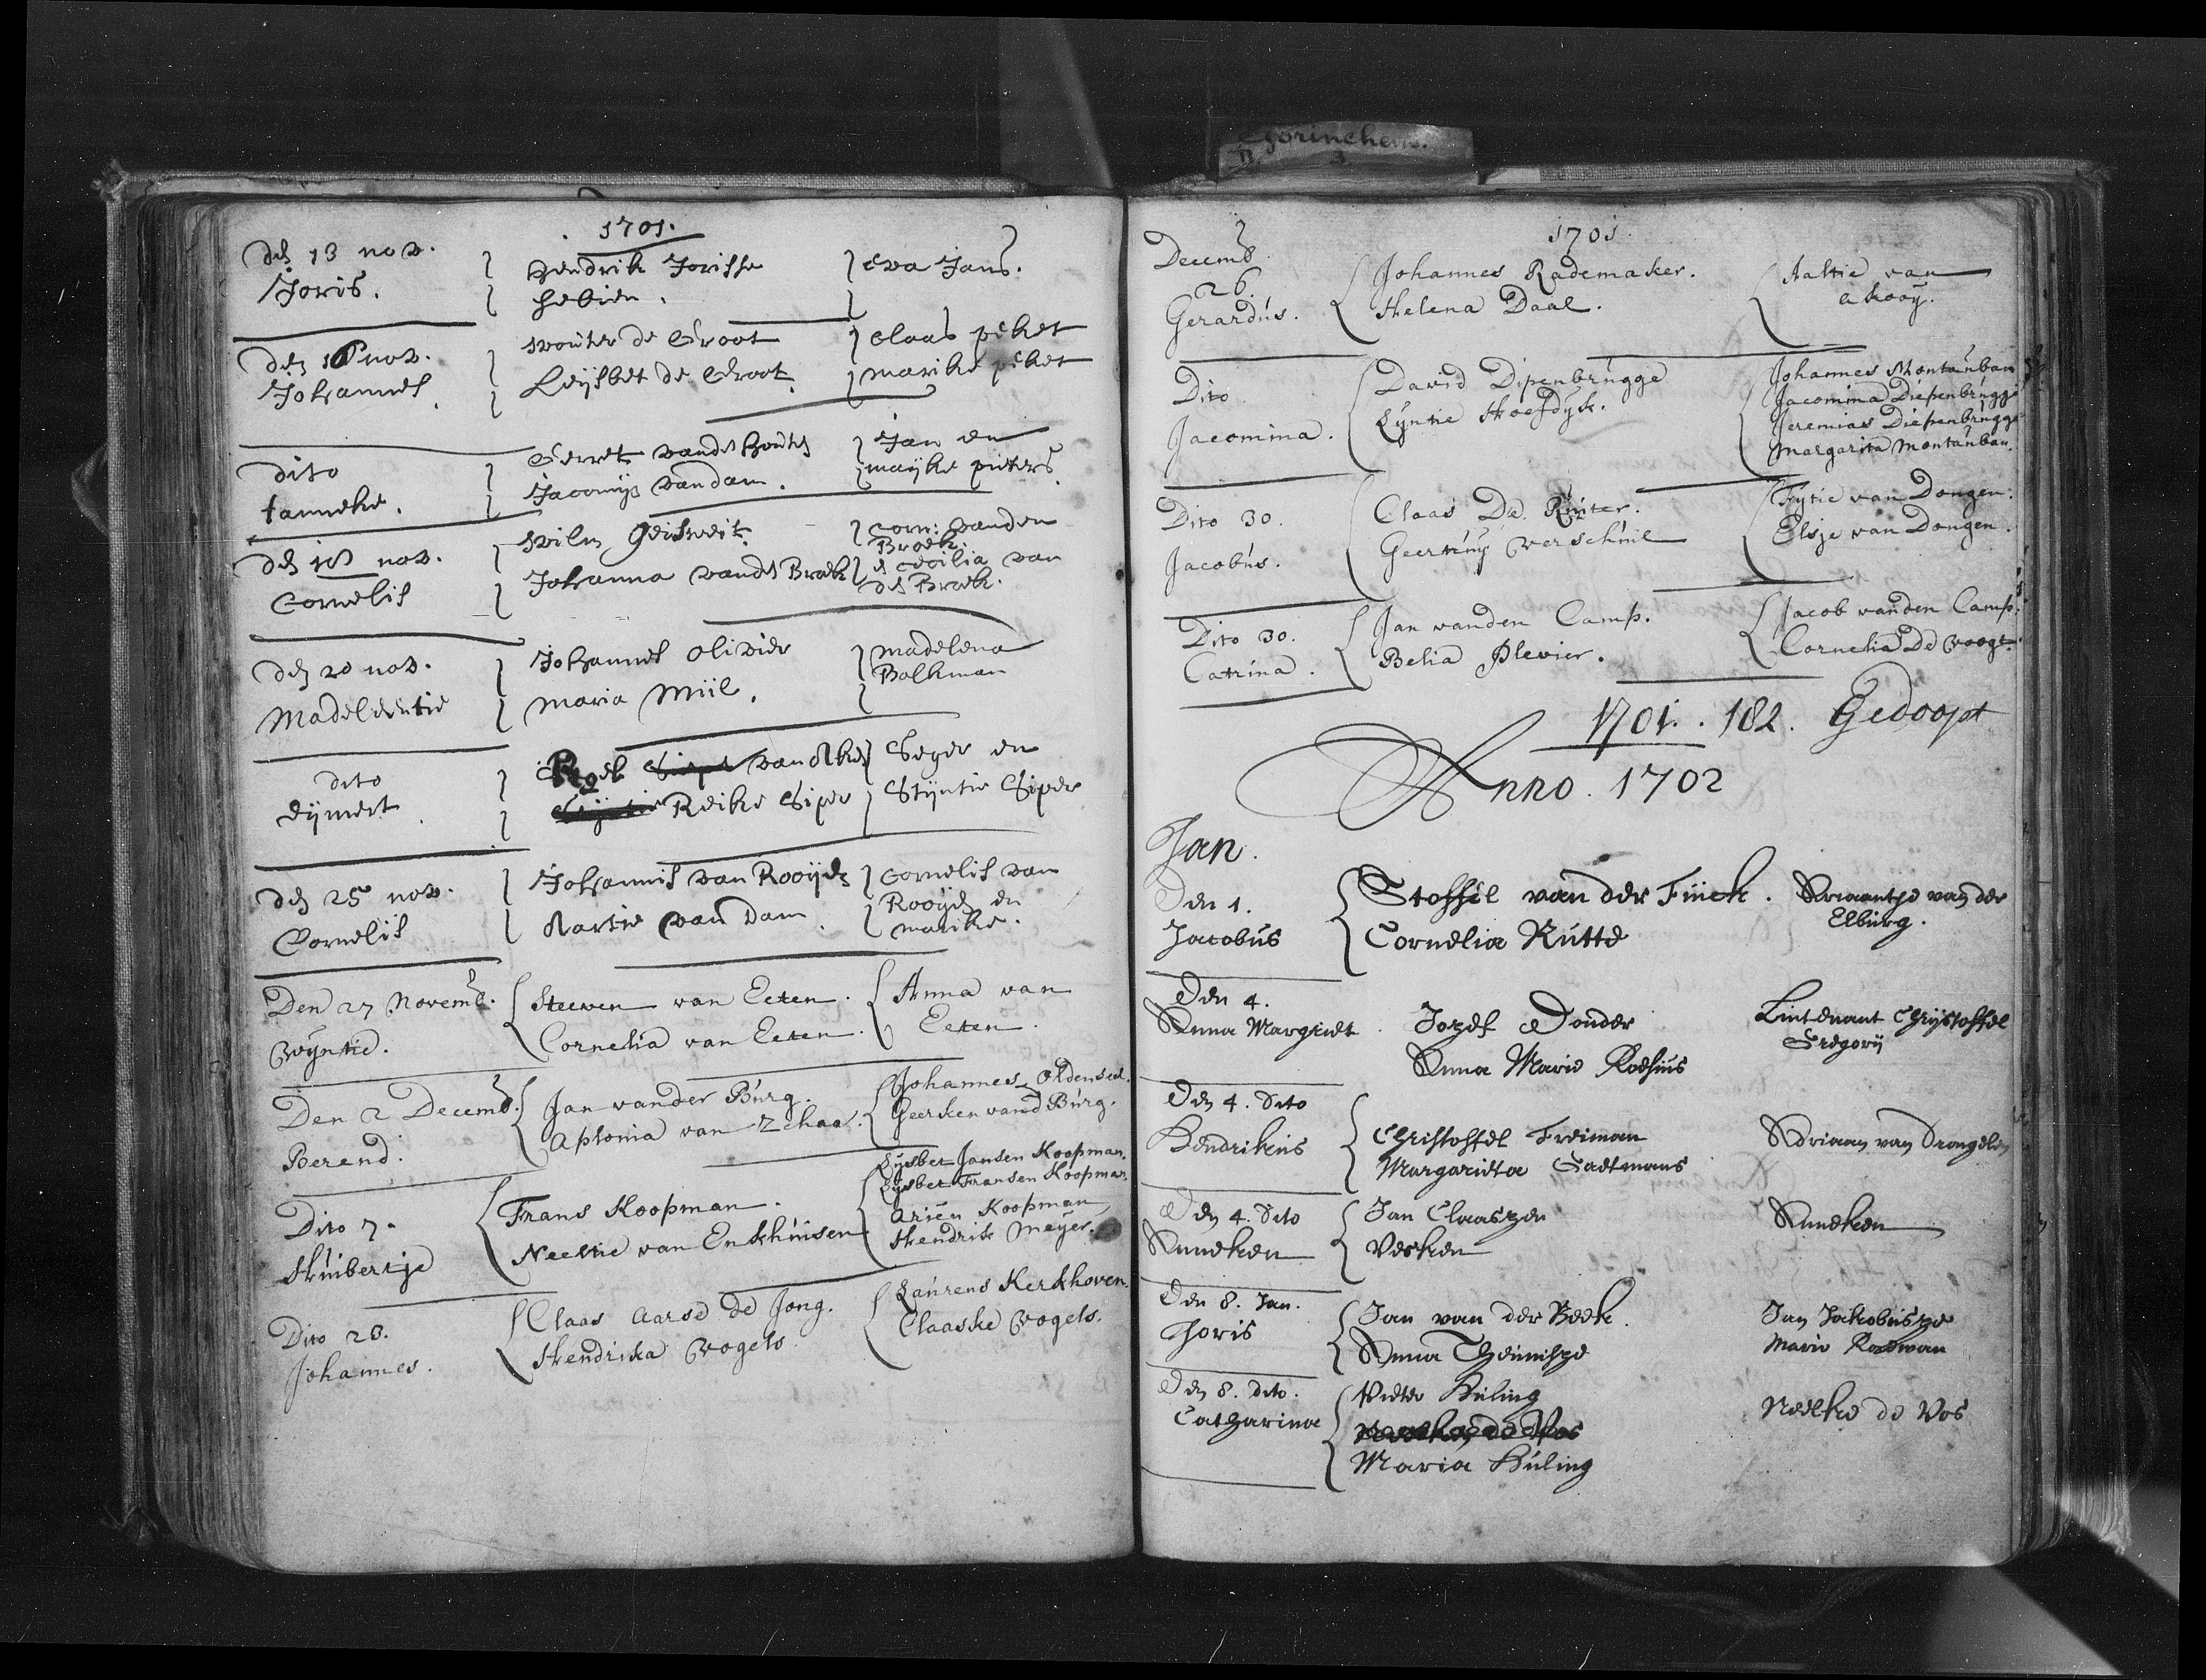 Gorinchem.
3
1701.
den 13 nov.
Joris.
Hendrik Jorisse
Eva Jans.
wouter de Groot
Claas peket
Johannes
Leijsbet de Groot
marike peket
dito
Janneke.
Gerret vander houten
Jacomijn van dam.
Jan en
maijke pieters
den 18 nov.
Cornelis
wilm
Johanna vanden Broek
Corn: vanden
Broek
Cecilia van
den Broek.
den 20 nov.
Madeleentie
Johannes olivier
Maria Miil.
madelena
Balkman
dito
Dijmert
Reike Siper
Seger en
Stijntie Siper
den 25 nov.
Cornelis
Johannis van Rooijen
Aartie van Dam
Cornelis van
Rooijen en
marike.
Den 27 Novemb.
Wyntie.
Steeven van Eeten.
Cornelia van Eeten.
Anna van
Eeten.
Den 2 Decemb.
Berend.
Jan vander Burg.
Aplonia van Zehaa.
Johannes Oldenseel.
Geerken vand Burg.
Dito 7.
Huibertje
Frans Koopman.
Neeltie van Enkhuisen
Lysbet Jansen Koopman.
Lysbet Fransen Koopman.
Arien Koopman
Hendrik Meyer.
Dito 28.
Johannes.
Claas Aarse de Jong.
Hendrika Vogels.
Laurens Kerkhoven.
Claaske Vogels.
1701.
Decemb.
26.
Gerardus.
Johannes Rademaker.
Helena Daal.
Aaltie van
a kooy.
Dito
Jacomina.
David Dipenbrugge
Lyntie Hoefdyk.
Johannes Montanban
Jacomina Diepenbrugge
Jeremias Diepenbrugge
Margarita Montanban.
Dito 30.
Jacobus.
Claas De Ruiter.
Geertruy Verschuil
Fytie van Dongen.
Elsje van Dongen.
Dito 30.
Catrina.
Jan vanden Camp.
Belia Plevier.
Jacob vanden Camp.
Cornelia De Voogt.
1701. 182. Gedoopt
Anno. 1702
Jan.
Den 1.
Jacobus
Stoffel van der Finck.
Cornelia Rutte
Ariaantje van der
Elburg.
Den 4.
Anna Margriet
Jozef Donder
Anna Marie Rodhius
Luitenant Chrijstoffel
Gregorij
Den 4. dito
Hendrikus
Christoffel Freiman
Margarieta Saetmans
Adriaan van Drongelen
Den 4. dito
Anneken
Jan Claaszen
Vesken
Anneken
Den 8. Jan.
Joris
Jan van der Beek.
Anna Theunisze
Jan Jakobusze
Marie Roelman
Den 8. dito.
Catharina
Pieter Huling
Neelke de Vos
Maria Huling
Neelke de Vos